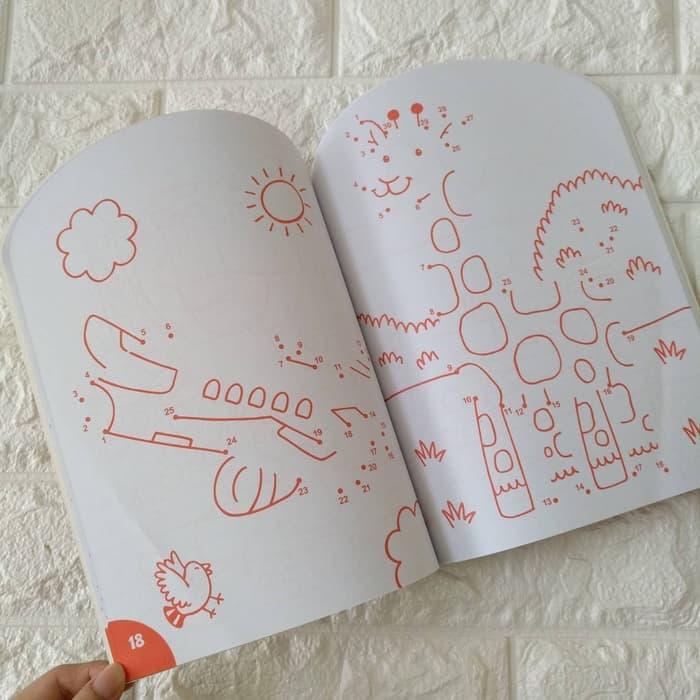 5
6
8
9
7
10
11
4
3
2
1
25
24
14
15
19
16
20
21
22
23
18
1
30
28
27
2
29
3
26
4
5
6
23
22
21
7
25
24
20
8
19
9
10
11
12
15
16
13
14
17
18